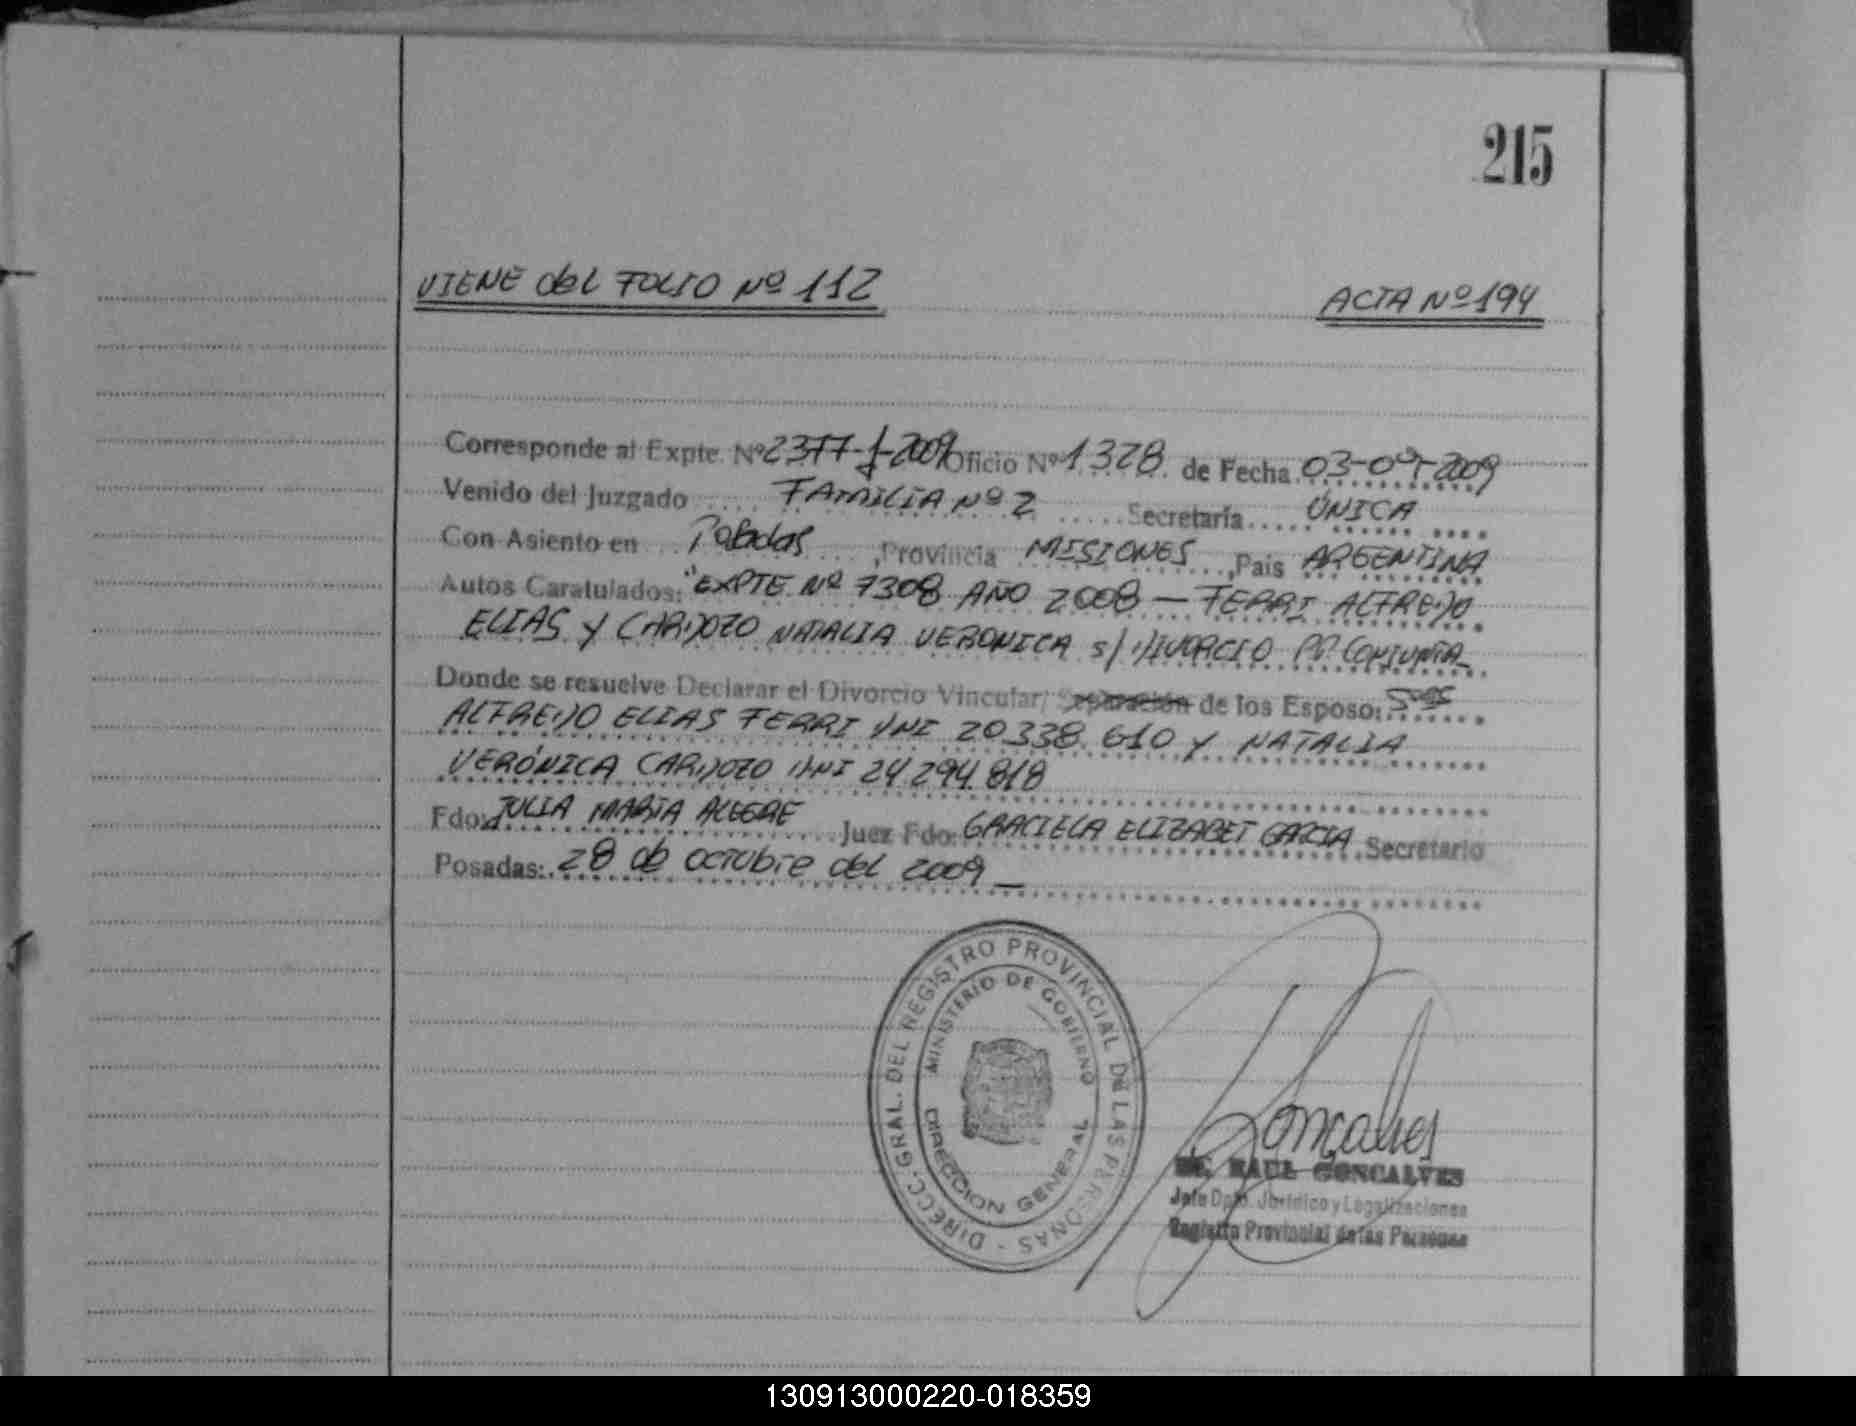 215
VIENE del FOLIO Nº 112 ACTA Nº 194
Corresponde al Expte. Nº 2377-J-2009 Oficio Nº 1328 de Fecha 03-09-2009
Venido del Juzgado FAMILIA Nº 2 Secretaría ÚNICA
Con Asiento en Posadas, Provincia MISIONES, Pais ARGENTINA
Autos Caratulados: "EXPTE Nº 7308 AÑO 2008 — FERRI ALFREDO
ELIAS Y CARDOZO NATALIA VERONICA s/ DIVORCIO PP CONJUNTA
Donde se resuelve Declarar el Divorcio Vincular/ Separación de los Esposo:
ALFREDO ELIAS FERRI DNI 20338.610 Y NATALIA
VERÓNICA CARDOZO DNI 24294.818
Fdo: JULIA MARÍA ALEGRE Juez Fdo: GRACIELA ELIZABET GARCIA Secretario
Posadas: 28 de octubre del 2009 —
DIRECC. GRAL. DEL REGISTRO PROVINCIAL DE LAS PERSONAS -
MINISTERIO DE GOBIERNO
DIRECCION GENERAL
Gonçalves
RAUL GONCALVES
Jefe Dpto. Jurídico y Legalizaciones
Registro Provincial de las Personas
130913000220-018359